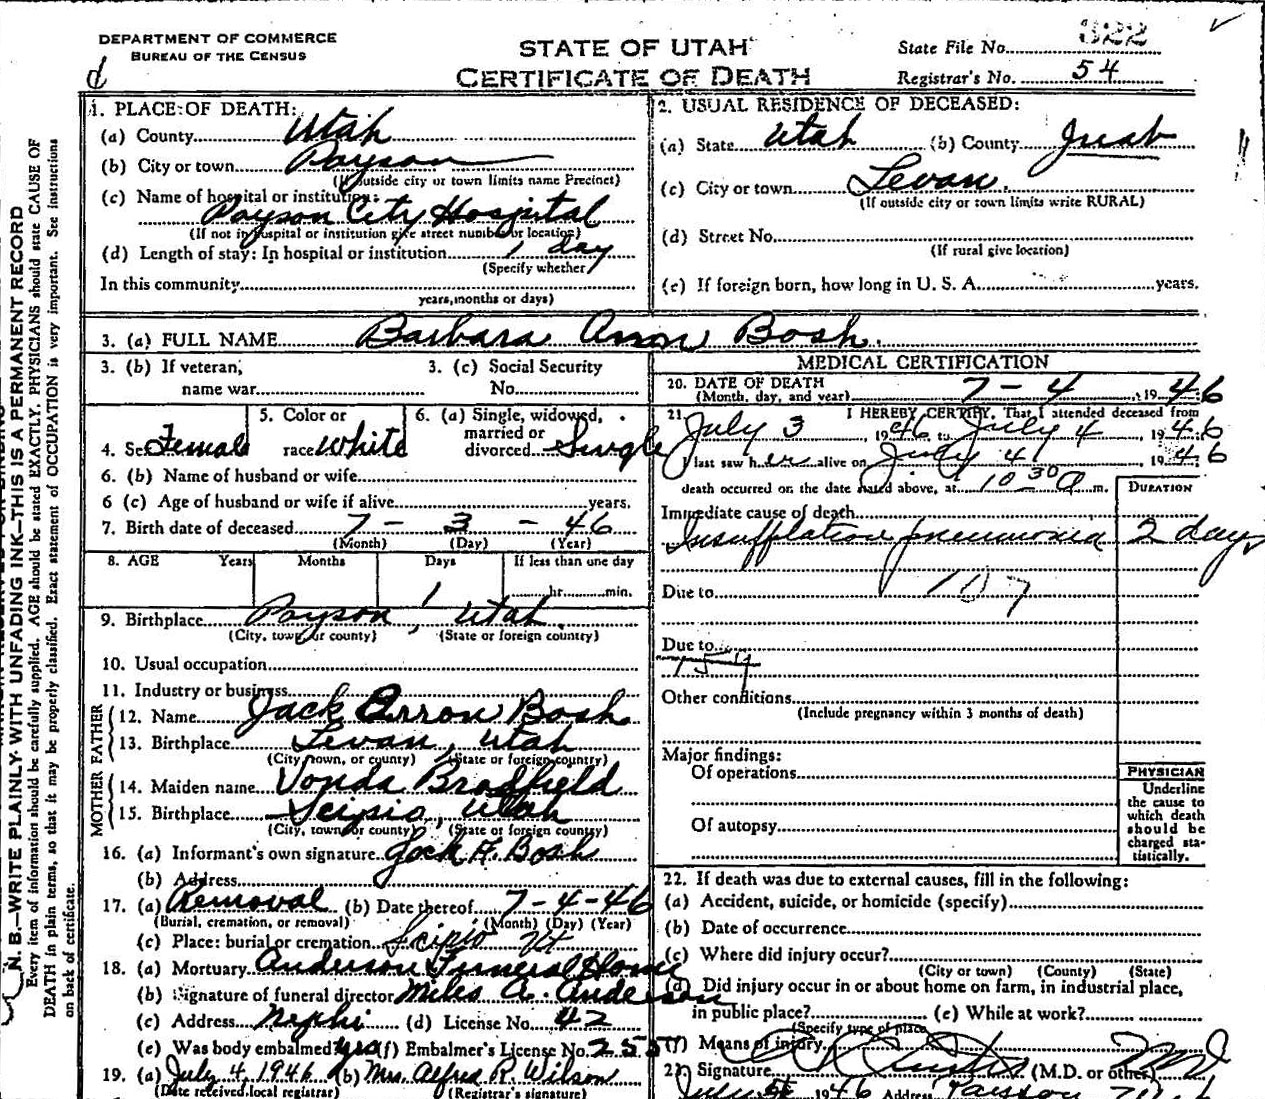 DEPARTMENT OF COMMERCE
BUREAU OF THE CENSUS
STATE OF UTAH
CERTIFICATE OF DEATH
State File No. 322
Registrar's No. 54
d
N. B.—WRITE PLAINLY WITH UNFADING INK—THIS IS A PERMANENT RECORD
Every item of information should be carefully supplied. AGE should be stated EXACTLY. PHYSICIANS should state CAUSE OF
DEATH in plain terms, so that it may be properly classified. Exact statement of OCCUPATION is very important. See instructions
on back of certificate.
1. PLACE OF DEATH:
(a) County Utah
(b) City or town Payson
(If outside city or town limits name Precinct)
(c) Name of hospital or institution:
Payson City Hospital
(If not in hospital or institution give street number or location)
(d) Length of stay: In hospital or institution 1 day
(Specify whether
In this community
years, months or days)
2. USUAL RESIDENCE OF DECEASED:
(a) State Utah (b) County Juab
(c) City or town Levan.
(If outside city or town limits write RURAL)
(d) Street No.
(If rural give location)
(e) If foreign born, how long in U. S. A. years.
3. (a) FULL NAME Barbara Arron Bosh.
3. (b) If veteran,
name war
3. (c) Social Security
No.
4. Sex Female
5. Color or
race White
6. (a) Single, widowed,
married or
divorced Single
6. (b) Name of husband or wife
6 (c) Age of husband or wife if alive years.
7. Birth date of deceased 7 - 3 - 46
(Month) (Day) (Year)
8. AGE Years Months Days If less than one day
1 hr. min.
9. Birthplace Payson, Utah.
(City, town, or county) (State or foreign country)
10. Usual occupation
11. Industry or business
FATHER
12. Name Jack Arron Bosh
13. Birthplace Levan, Utah
(City, town, or county) (State or foreign country)
MOTHER
14. Maiden name Vonda Bradfield
15. Birthplace Scipio, Utah
(City, town or county) (State or foreign country)
16. (a) Informant's own signature Jack A. Bosh
(b) Address
17. (a) Removal (b) Date thereof 7-4-46
(Burial, cremation, or removal) (Month) (Day) (Year)
(c) Place: burial or cremation Scipio Ut
18. (a) Mortuary Anderson Funeral Home
(b) Signature of funeral director Miles A. Anderson
(c) Address Nephi (d) License No. 42
(e) Was body embalmed? yes (f) Embalmer's License No. 255
19. (a) July 4, 1946 (b) Mrs. Alfred R. Wilson
(Date received local registrar) (Registrar's signature)
MEDICAL CERTIFICATION
20. DATE OF DEATH
(Month, day, and year) 7 - 4, 1946
21. I HEREBY CERTIFY, That I attended deceased from
July 3, 1946 to July 4, 1946
I last saw her alive on July 4, 1946
death occurred on the date stated above, at 10 30 a m.
DURATION
Immediate cause of death
Insufflation pneumonia 2 days
Due to 107
Due to
159
Other conditions
(Include pregnancy within 3 months of death)
Major findings:
Of operations
Of autopsy
PHYSICIAN
Underline
the cause to
which death
should be
charged sta-
tistically.
22. If death was due to external causes, fill in the following:
(a) Accident, suicide, or homicide (specify)
(b) Date of occurrence
(c) Where did injury occur?
(City or town) (County) (State)
(d) Did injury occur in or about home on farm, in industrial place,
in public place? (e) While at work?
(Specify type of place)
(f) Means of injury
23. Signature (M.D. or other) MD
July 5 1946 Address Payson Utah